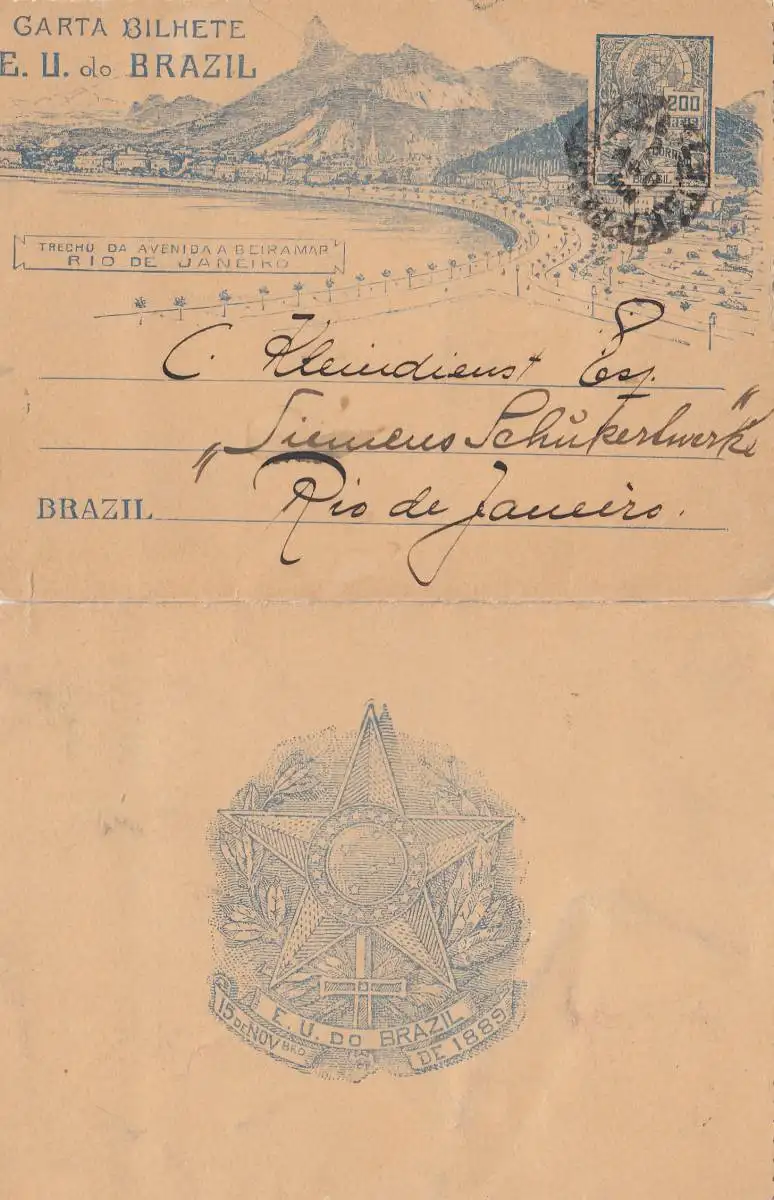 CARTA BILHETE
E. U. do BRAZIL
200
REIS
BRASIL
TRECHO DA AVENIDA A BEIRAMAR
RIO DE JANEIRO
C. Kleindienst Esq.
"Siemens Schŭkertwerke"
BRAZIL Rio de Janeiro.
E. U. DO BRAZIL
15 DE NOVBRO DE 1889